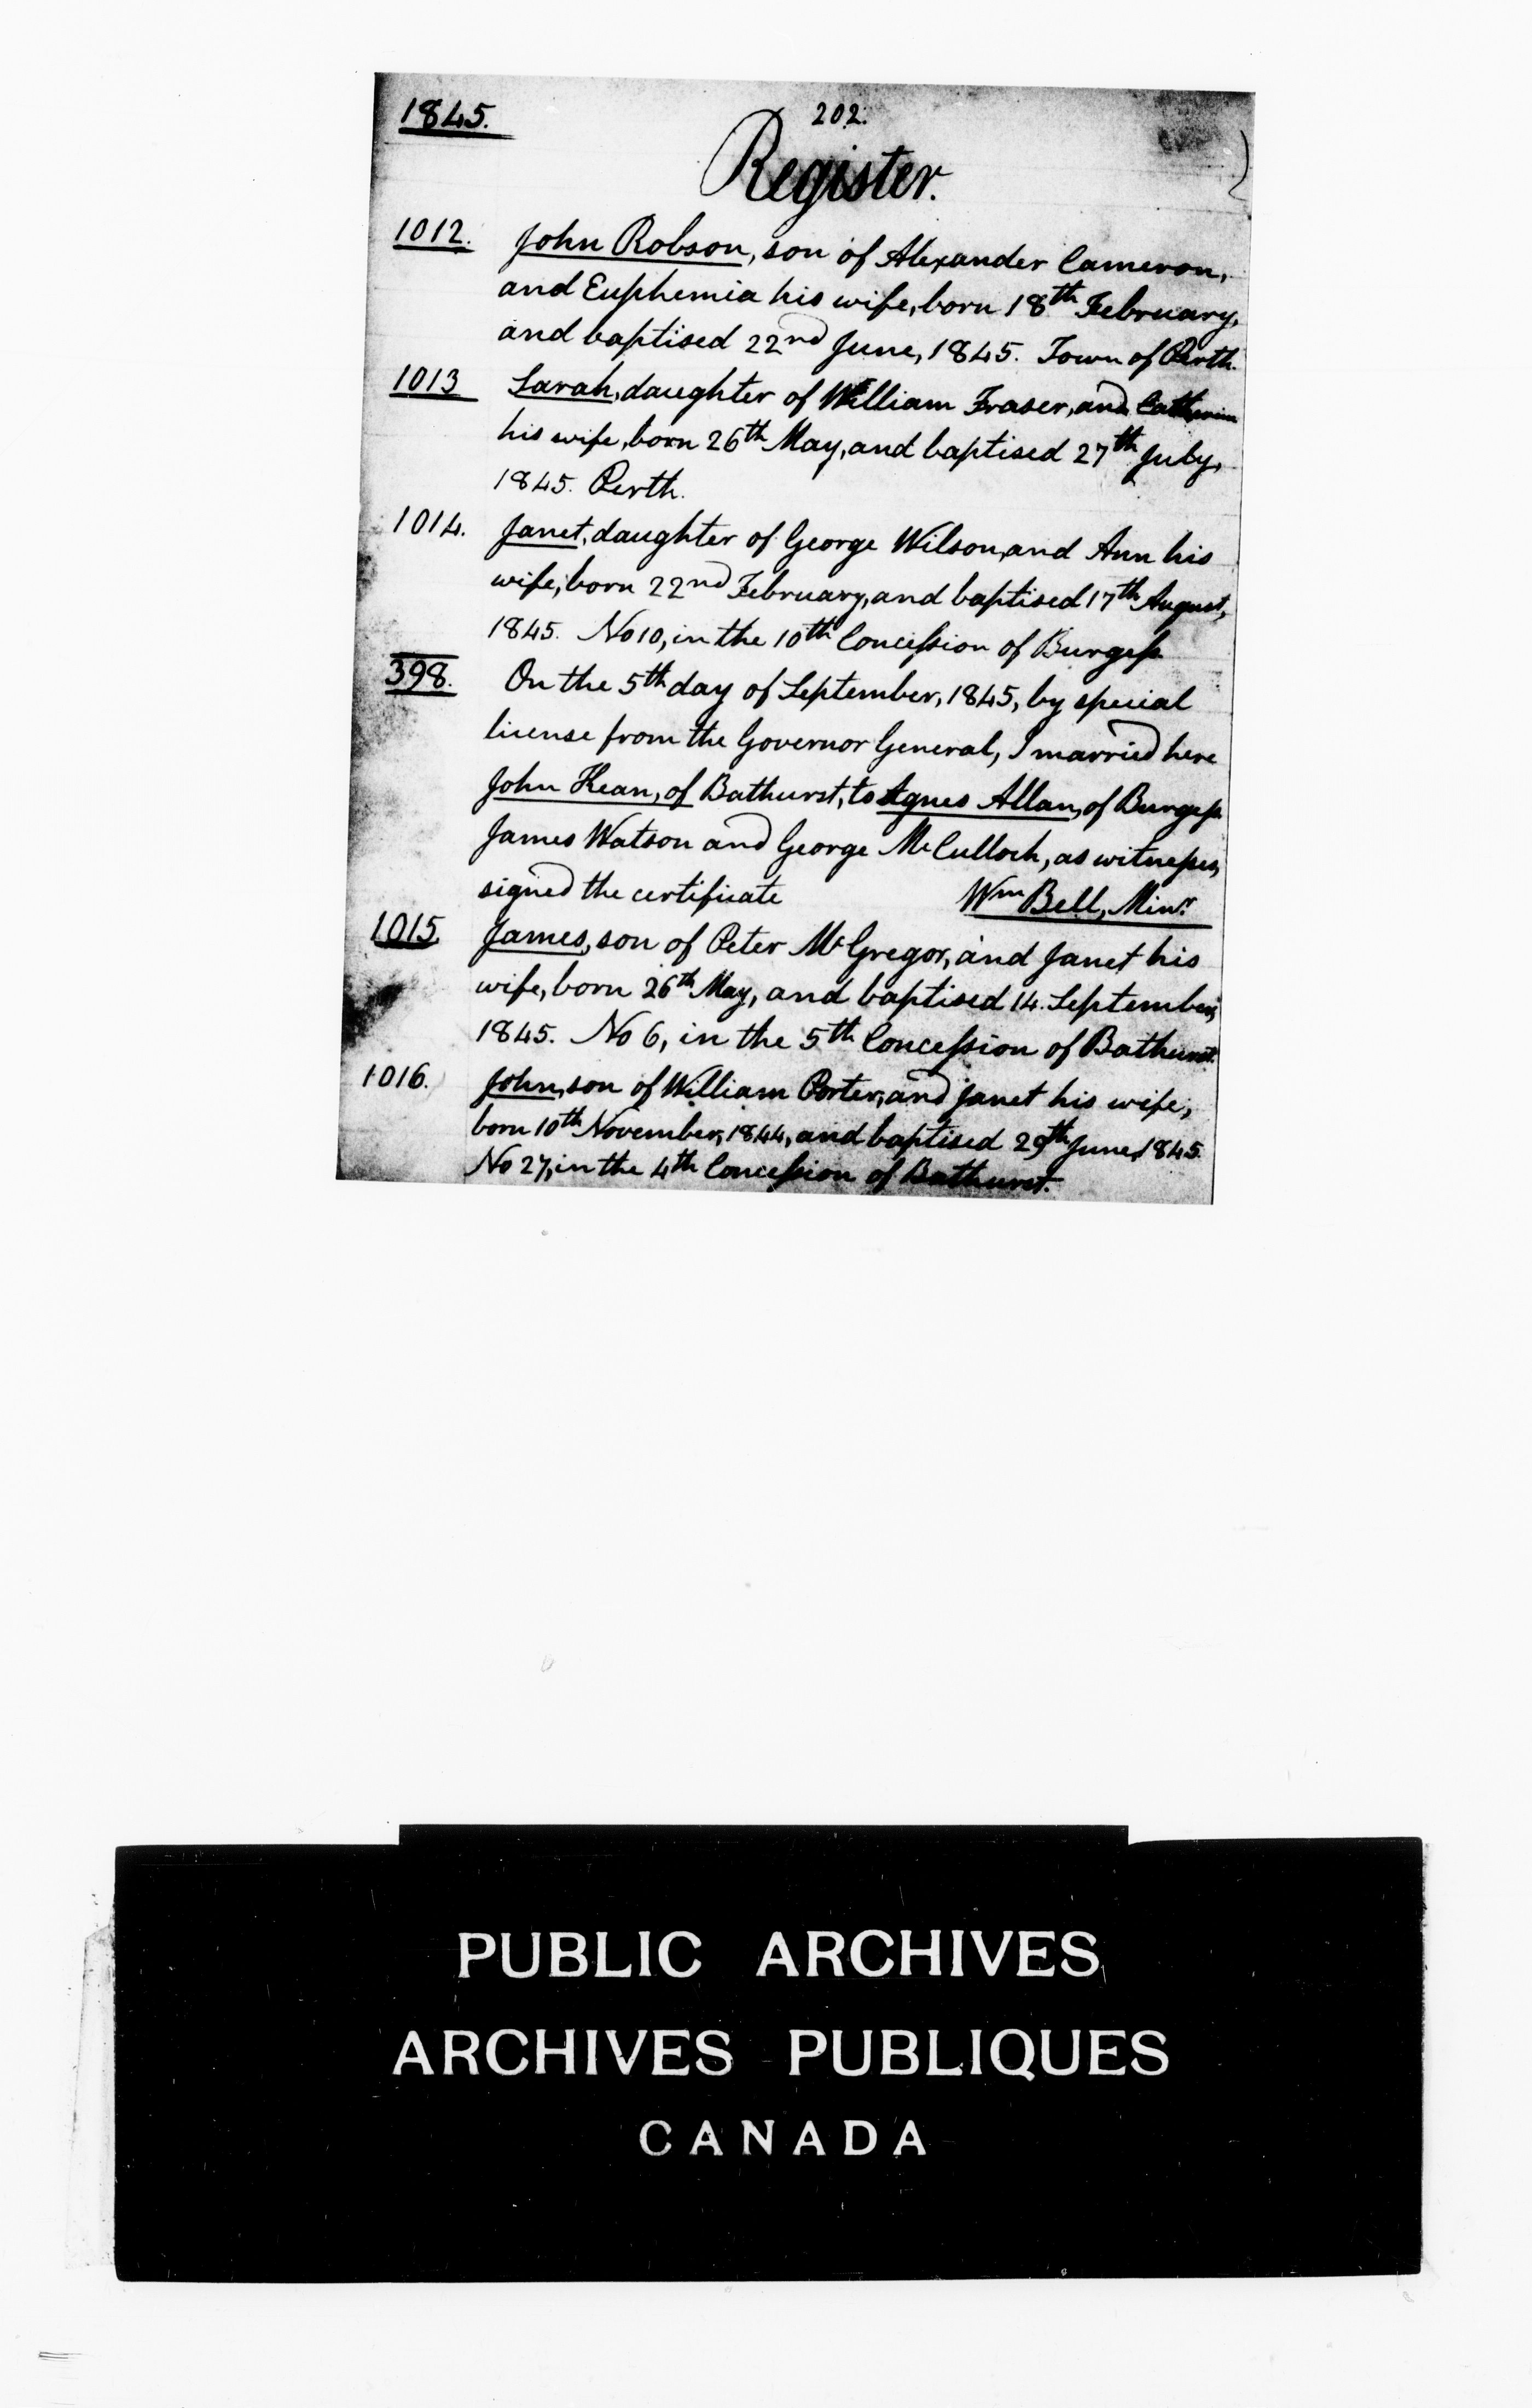 1845.
202.
Register.
1012. John Robson, son of Alexander Cameron,
and Euphemia his wife, born 18th February,
and baptised 22nd June, 1845. Town of Perth.
1013 Sarah, daughter of William Fraser, and Catherine
his wife, born 26th May, and baptised 27th July,
1845. Perth.
1014. Janet, daughter of George Wilson, and Ann his
wife, born 22nd February, and baptised 17th August,
1845. No 10, in the 10th Concession of Burgess
398. On the 5th day of September, 1845, by special
license from the Governor General, I married here
John Kean, of Bathurst, to Agnes Allan, of Burgess.
James Watson and George McCulloch, as witnesses,
signed the certificate Wm Bell, Minr.
1015. James, son of Peter McGregor, and Janet his
wife, born 26th May, and baptised 14. September,
1845. No 6, in the 5th Concession of Bathurst.
1016. John, son of William Porter, and Janet his wife,
born 10th November, 1844, and baptised 29th June, 1845.
No 27, in the 4th Concession of Bathurst.
PUBLIC ARCHIVES
ARCHIVES PUBLIQUES
CANADA